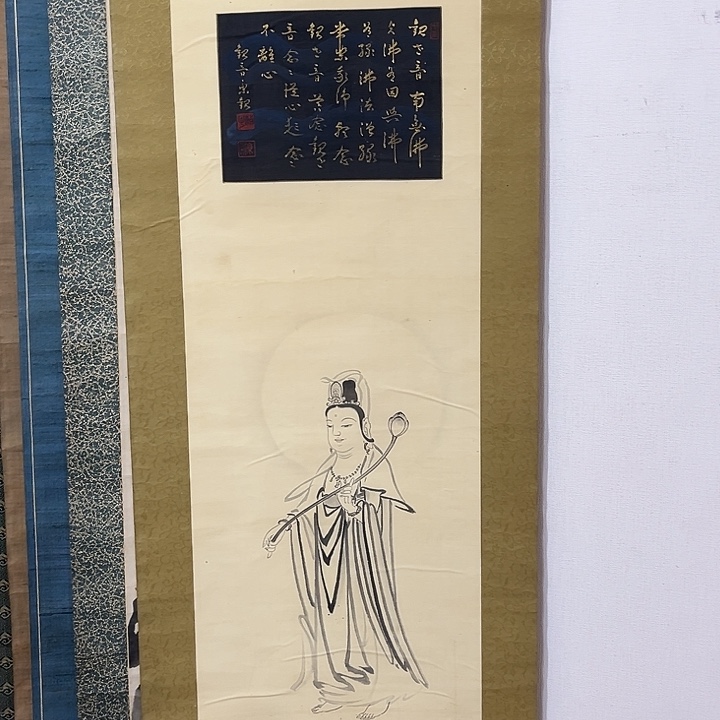 観世音 南無佛
与佛有因 與佛
有縁 佛法僧縁
常楽我浄 朝念
観世音 暮念観世
音 念々従心起 念々
不離心
観音